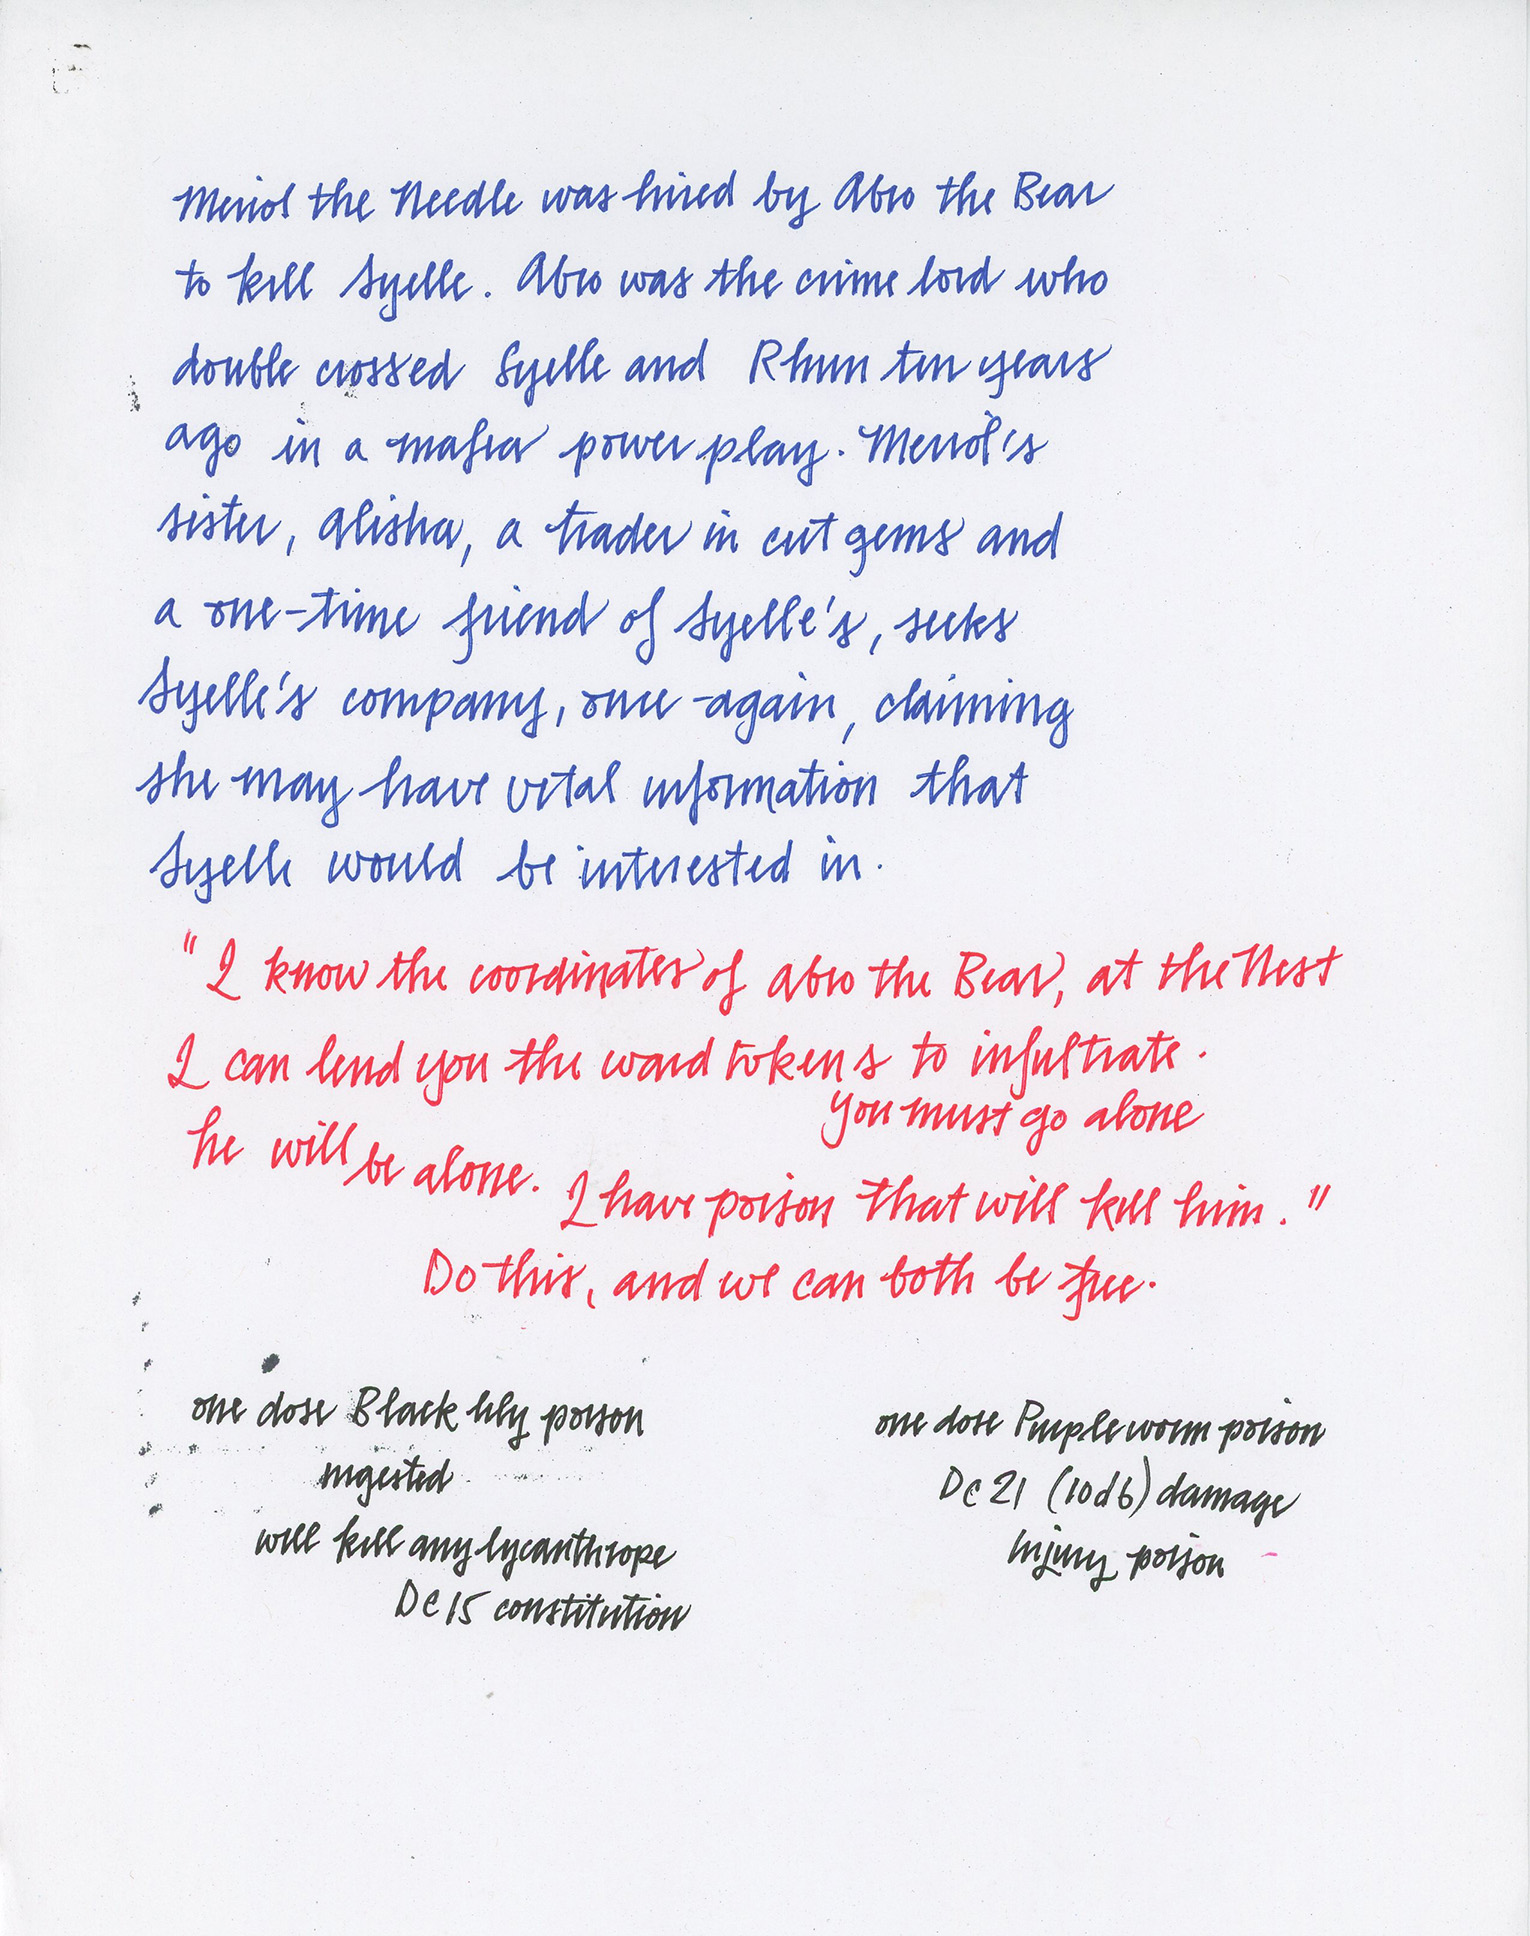 Merrol the Needle was hired by Abro the Bear
to kill Syelle. Abro was the crime lord who
double crossed Syelle and Rhun ten years
ago in a mafia power play. Merrol's
sister, Alisha, a trader in cut gems and
a one-time friend of Syelle's, seeks
Syelle's company, once-again, claiming
she may have vital information that
Syelle would be interested in.
"I know the coordinates of Abro the Bear, at the Nest
I can lend you the ward tokens to infultrate.
you must go alone
he will be alone.
I have poison that will kill him."
Do this, and we can both be free.
one dose Black lily poison
ingested
will kill any lycanthrope
DC 15 constitution
one dose Purple worm poison
DC 21 (10d6) damage
injury poison